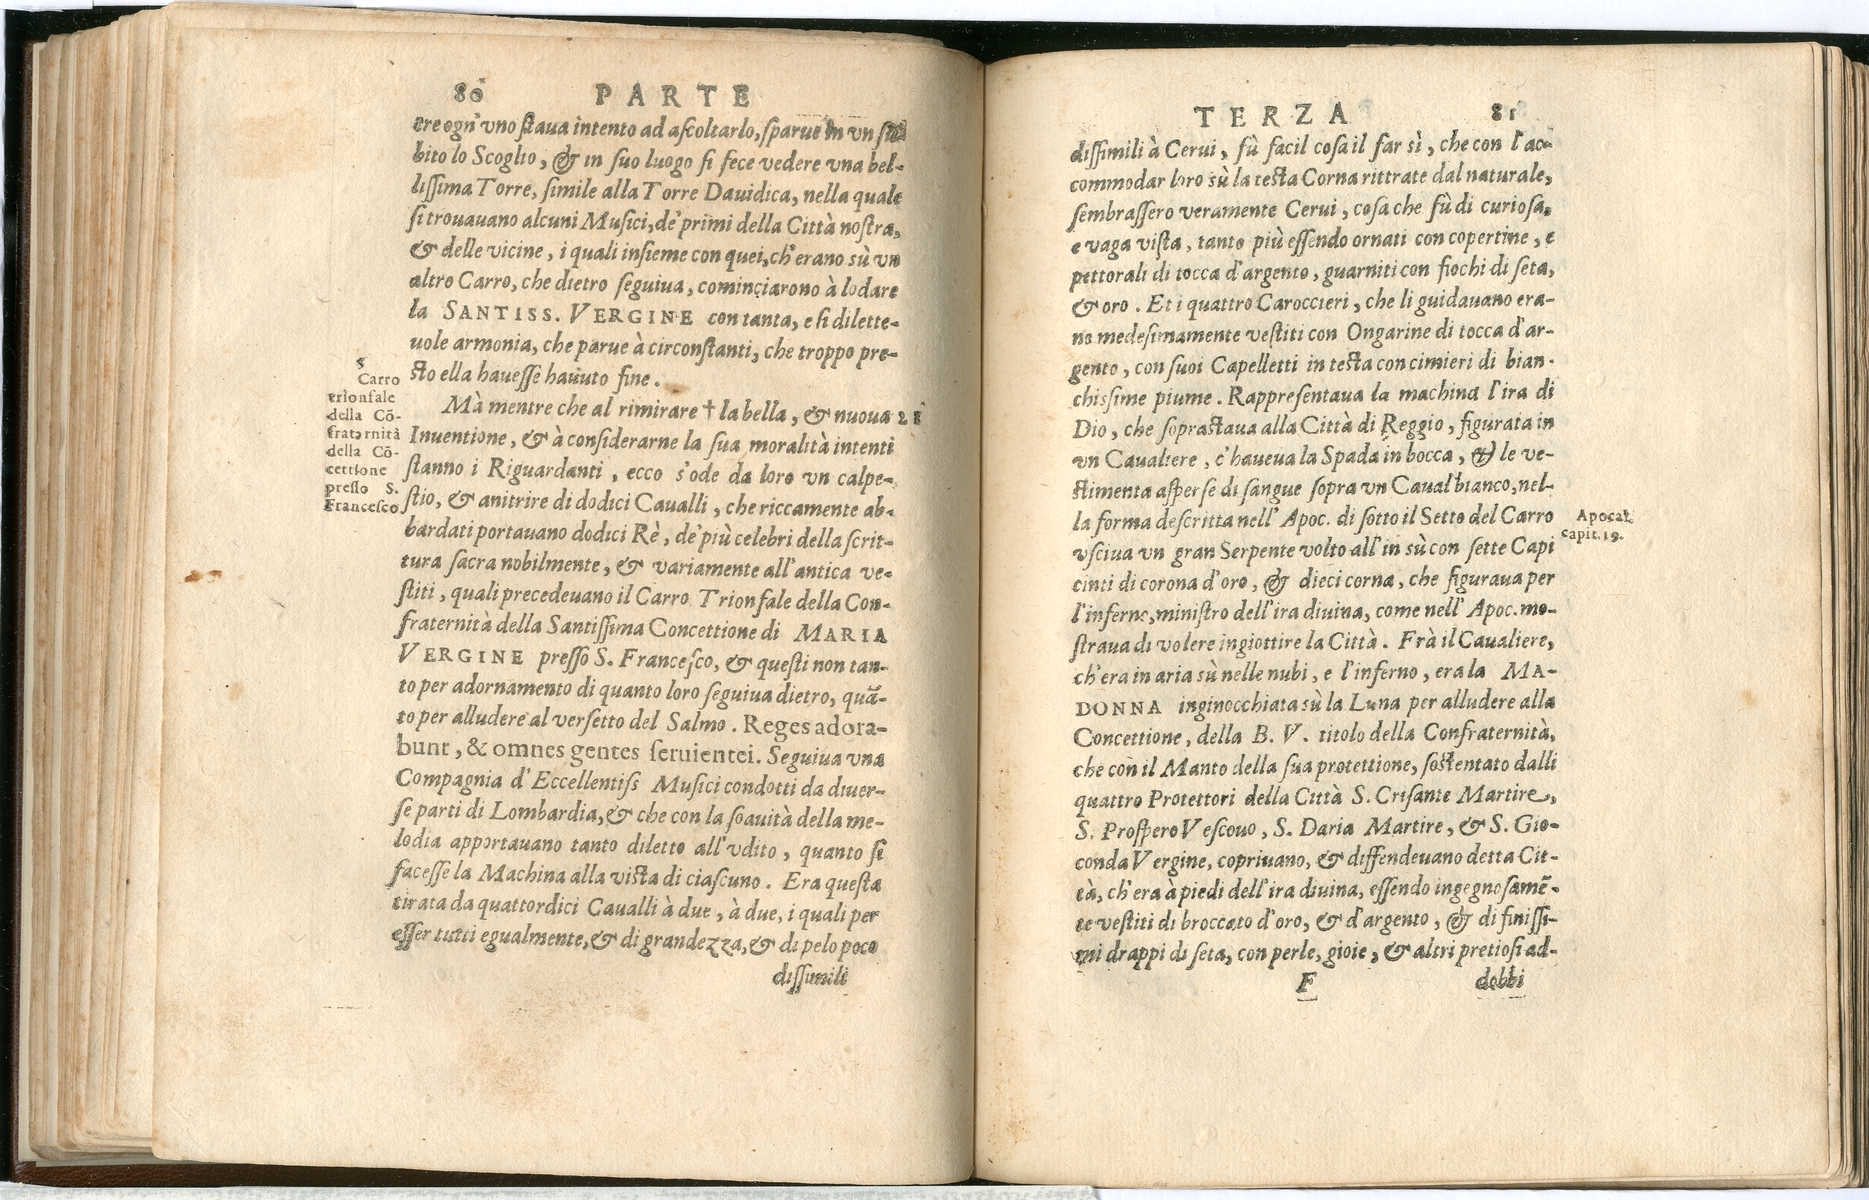 80 PARTE
tre ogn'vno ſtaua intento ad aſcoltarlo, ſparue in vn ſu
bito lo Scoglio, & in ſuo luogo ſi fece vedere vna bel-
liſſima Torre, ſimile alla Torre Dauidica, nella quale
ſi trouauano alcuni Muſici, de' primi della Città noſtra,
& delle vicine, i quali inſieme con quei, ch'erano sù vn
altro Carro, che dietro ſeguiua, cominciarono à lodare
la SANTISS. VERGINE con tanta, e ſi dilette-
uole armonia, che parue à circonſtanti, che troppo pre-
ſto ella haueſſe hauuto fine.
Mà mentre che al rimirare † la bella, & nuoua
Inuentione, & à conſiderarne la ſua moralità intenti
ſtanno i Riguardanti, ecco s'ode da loro vn calpe-
ſtio, & anitrire di dodici Caualli, che riccamente ab-
bardati portauano dodici Rè, de' più celebri della ſcrit-
tura ſacra nobilmente, & variamente all'antica ve-
ſtiti, quali precedeuano il Carro Trionfale della Con-
fraternità della Santiſſima Concettione di MARIA
VERGINE preſſo S. Franceſco, & queſti non tan-
to per adornamento di quanto loro ſeguiua dietro, quā-
to per alludere al verſetto del Salmo. Reges adora-
bunt, & omnes gentes ſeruientei. Seguiua vna
Compagnia d'Eccellentiſs Muſici condotti da diuer-
ſe parti di Lombardia, & che con la ſoauità della me-
lodia apportauano tanto diletto all'vdito, quanto ſi
faceſſe la Machina alla viſta di ciaſcuno. Era queſta
tirata da quattordici Caualli à due, à due, i quali per
eſſer tutti egualmente, & di grandezza, & di pelo poco
diſſimili
s
Carro
trionfale
della Cō-
fraternità
della Cō-
cettione
preſſo S.
Franceſco
TERZA 81
diſſimili à Cerui, fù facil coſa il far sì, che con l'ac-
commodar loro sù la teſta Corna rittrate dal naturale,
ſembraſſero veramente Cerui, coſa che fù di curioſa,
e vaga viſta, tanto più eſſendo ornati con copertine, e
pettorali di tocca d'argento, guarniti con fiochi di ſeta,
& oro. Et i quattro Caroccieri, che li guidauano era-
no medeſimamente veſtiti con Ongarine di tocca d'ar-
gento, con ſuoi Capelletti in teſta con cimieri di bian-
chiſsime piume. Rappreſentaua la machina l'ira di
Dio, che ſopraſtaua alla Città di Reggio, figurata in
vn Caualiere, c'haueua la Spada in bocca, & le ve-
ſtimenta aſperſe di ſangue ſopra vn Caual bianco, nel-
la forma deſcritta nell'Apoc. di ſotto il Setto del Carro
vſciua vn gran Serpente volto all'in sù con ſette Capi
cinti di corona d'oro, & dieci corna, che figuraua per
l'inferno, miniſtro dell'ira diuina, come nell'Apoc. mo-
ſtraua di volere ingiottire la Città. Frà il Caualiere,
ch'era in aria sù nelle nubi, e l'inferno, era la MA-
DONNA inginocchiata sù la Luna per alludere alla
Concettione, della B. V. titolo della Confraternità,
che con il Manto della ſua protettione, ſoſtentato dalli
quattro Protettori della Città S. Criſante Martire,
S. Proſpero Veſcouo, S. Daria Martire, & S. Gio-
conda Vergine, copriuano, & diffendeuano detta Cit-
tà, ch'era à piedi dell'ira diuina, eſſendo ingegnoſamē-
te veſtiti di broccato d'oro, & d'argento, & di finiſſi-
mi drappi di ſeta, con perle, gioie, & altri pretioſi ad-
F dobbi
Apocal.
capit. 19.